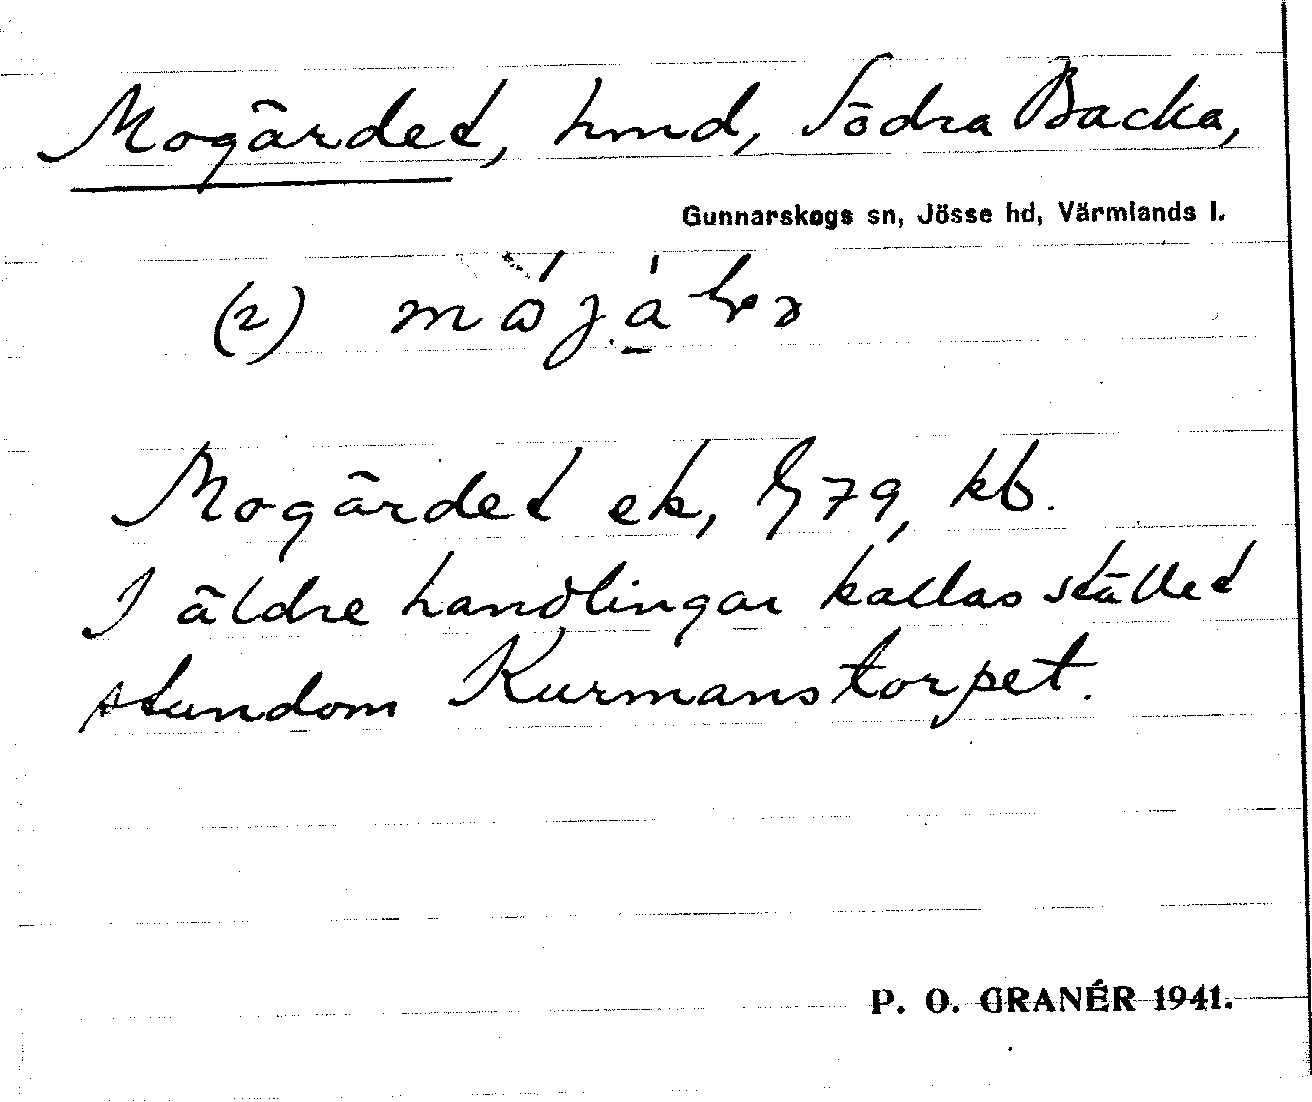 Mogärdet, hmd, Södra Backa,
Gunnarskogs sn, Jösse hd, Värmlands l.
(2)
Mogärdet ek, 79, kb.
I äldre handlingar kallas stället
stundom Kurmanstorpet.
P. O. GRANÉR 1941.